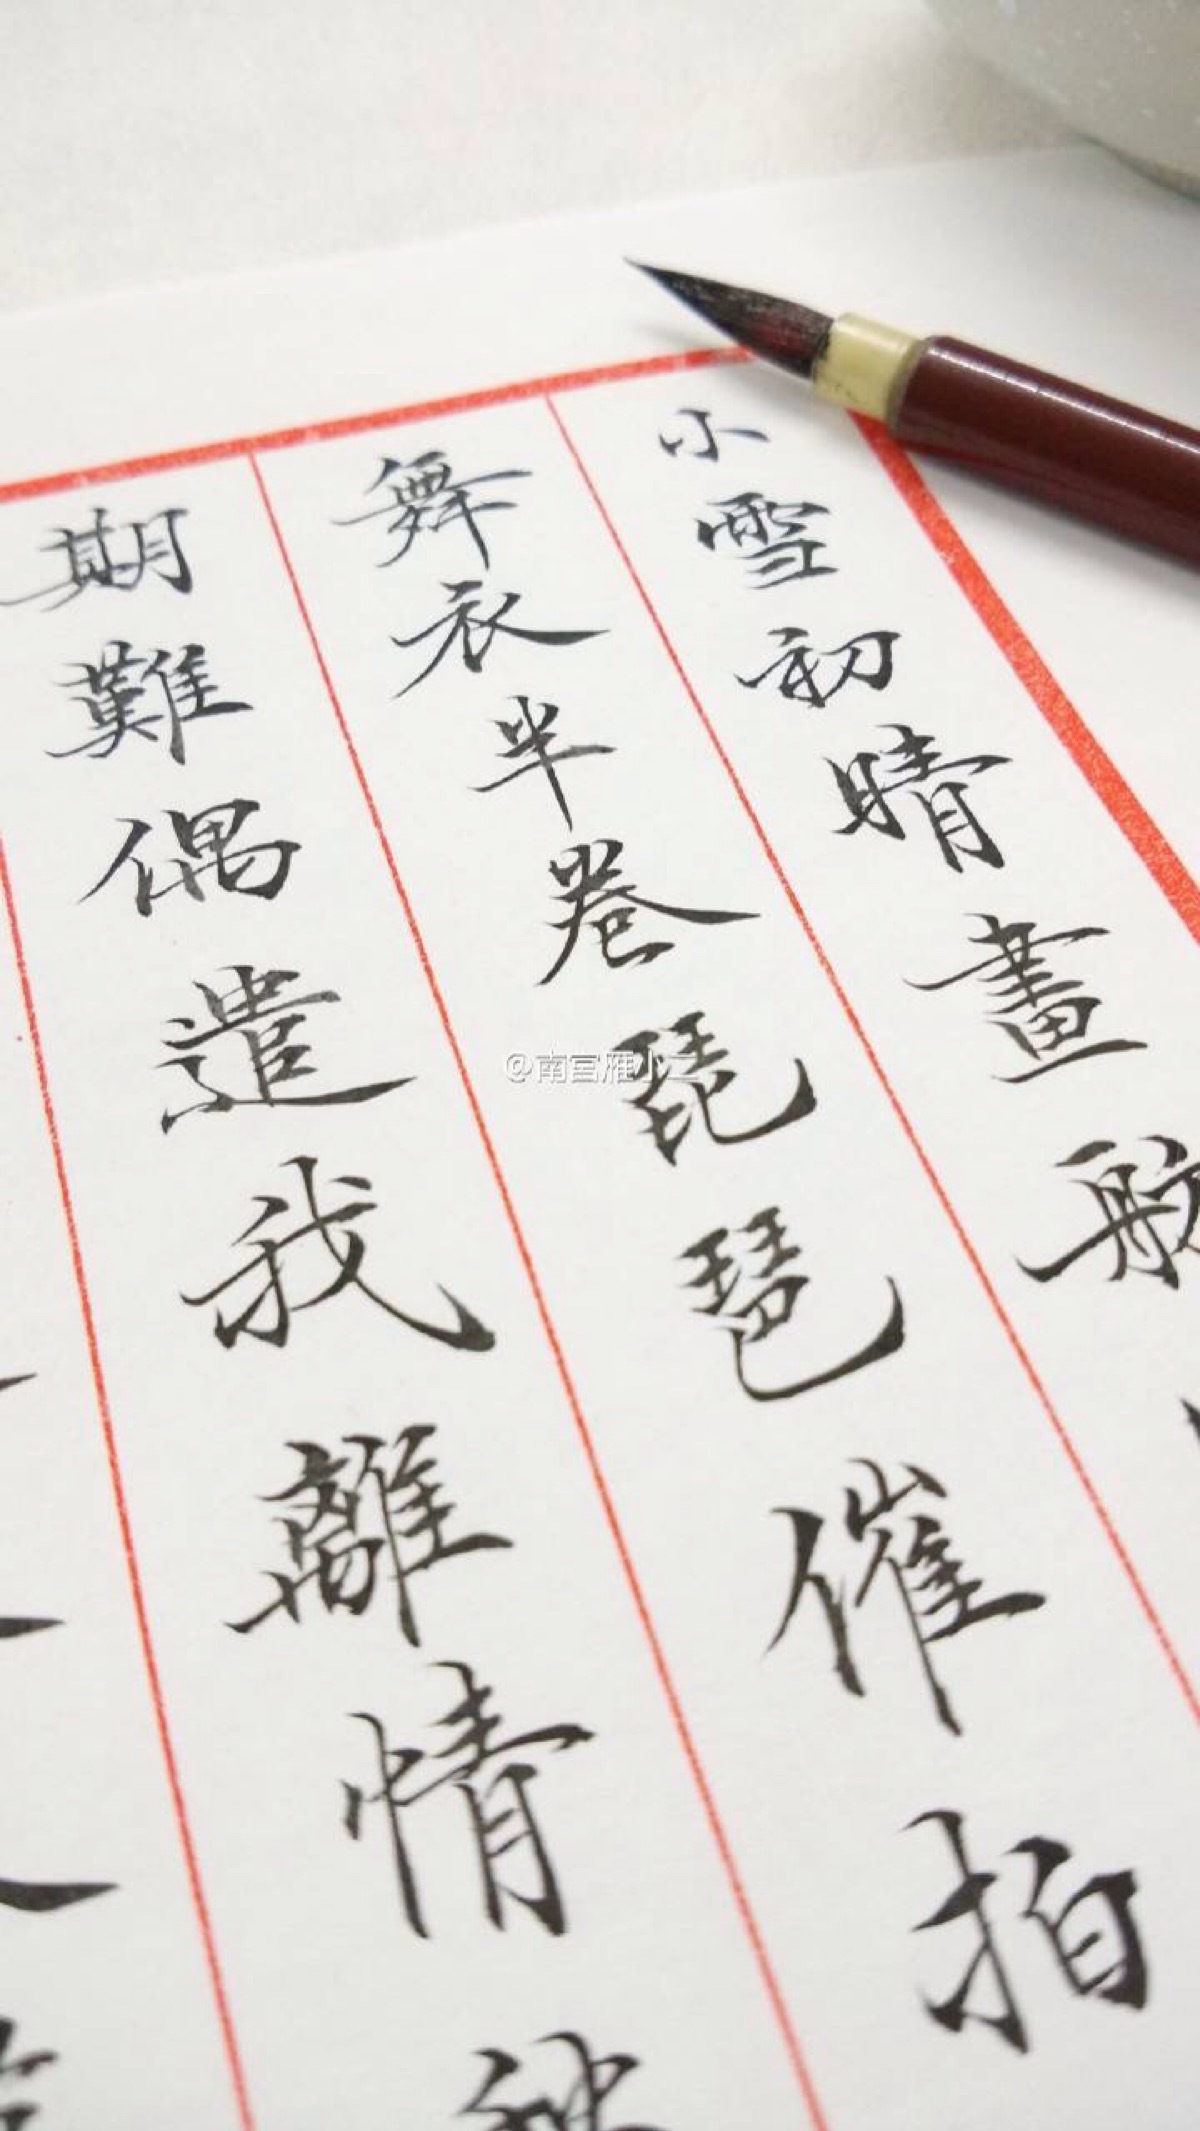 小雪初晴畫舫
舞衣半卷琵琶催拍
期難偶遣我離情
@南宫雁小二